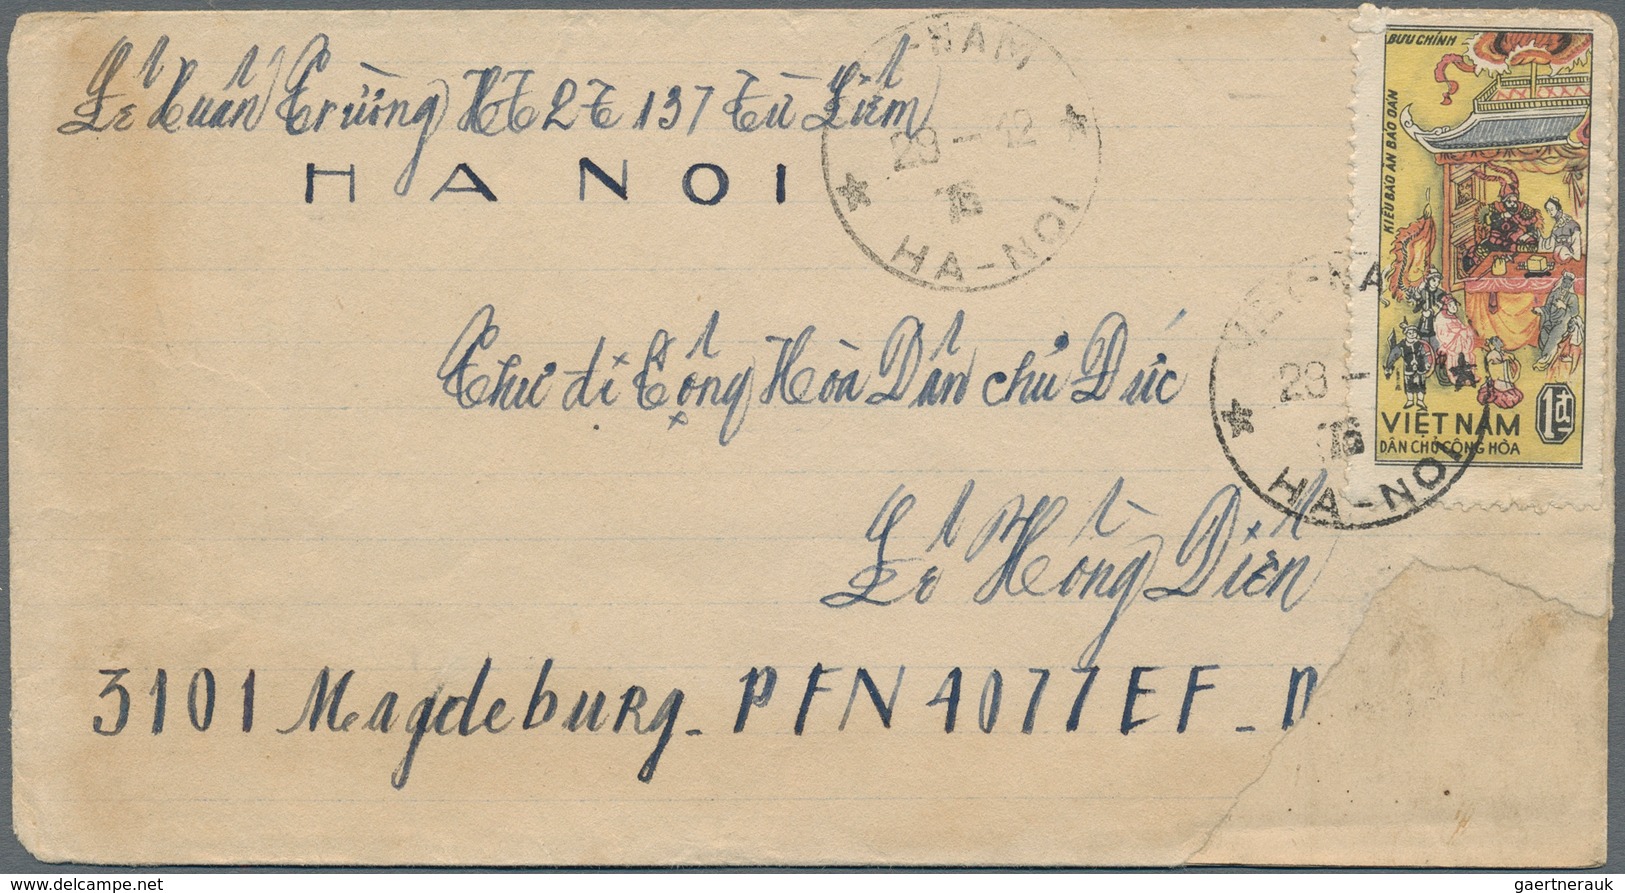 Lê Xuân Trường HT 2T 137 Từ Liêm
HA NOI
-NAM
29 - 12
76
HA-NOI
BƯU CHÍNH
KIỀU BÁO ÂN BÁO OÁN
1đ
VIỆT NAM
DÂN CHỦ CỘNG HÒA
29 -
76
HA-NOI
Thư đi Cộng Hòa Dân chủ Đức
Lê Hồng Điển
3101 Magdeburg - PFN 4077EF - D
gaertnerauk